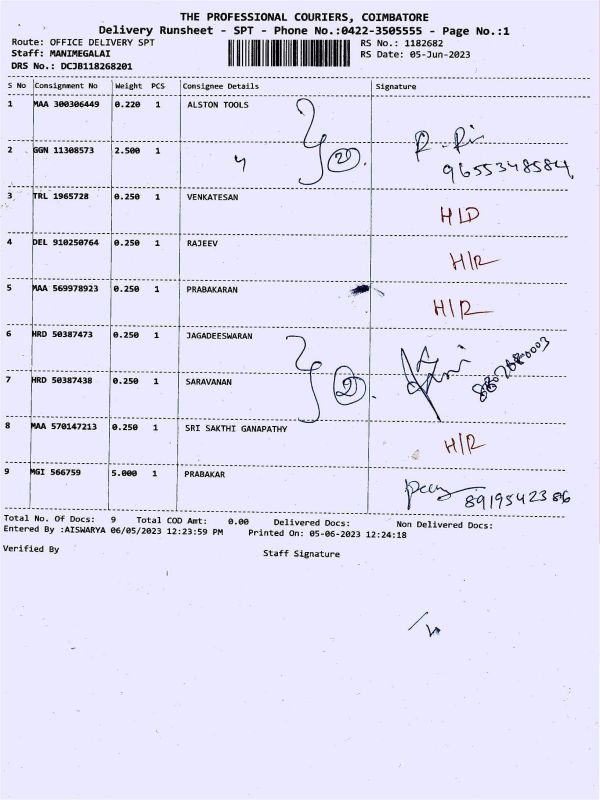 THE PROFESSIONAL COURIERS, COIMBATORE
Delivery Runsheet - SPT - Phone No.:0422-3505555 - Page No.:1
Route: OFFICE DELIVERY SPT RS No.: 1182682
Staff: MANIMEGALAI RS Date: 05-Jun-2023
DRS No.: DCJB118268201
S No Consignment No Weight PCS Consignee Details Signature
1 MAA 300306449 0.220 1 ALSTON TOOLS
2 GGN 11308573 2.500 1
9655348584
3 TRL 1965728 0.250 1 VENKATESAN H/D
4 DEL 910250764 0.250 1 RAJEEV H/R
5 MAA 569978923 0.250 1 PRABAKARAN H/R
6 HRD 50387473 0.250 1 JAGADEESWARAN
7 HRD 50387438 0.250 1 SARAVANAN 2
8 MAA 570147213 0.250 1 SRI SAKTHI GANAPATHY H/R
9 MGI 566759 5.000 1 PRABAKAR
Total No. Of Docs: 9 Total COD Amt: 0.00 Delivered Docs: Non Delivered Docs:
Entered By :AISWARYA 06/05/2023 12:23:59 PM Printed On: 05-06-2023 12:24:18
Verified By Staff Signature